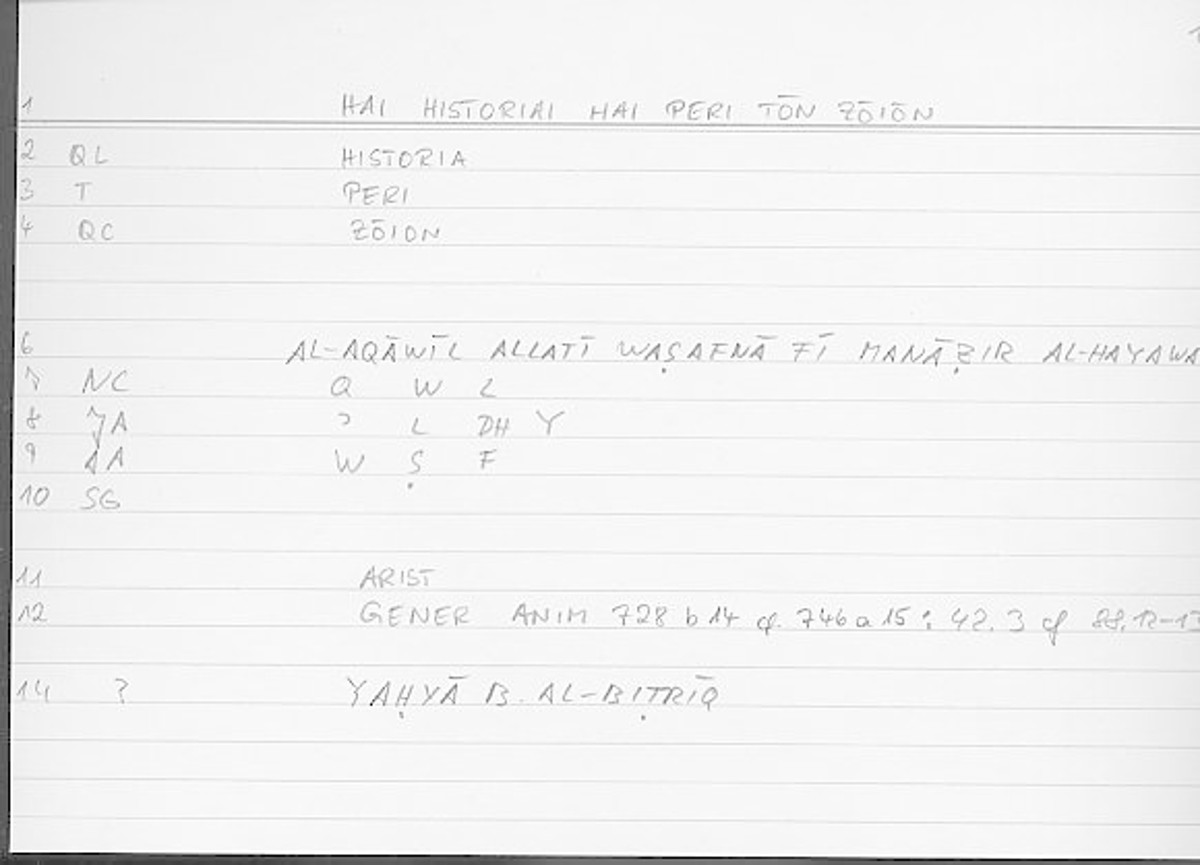 1 HAI HISTORIAI HAI PERI TŌN ZŌIŌN
2 QL HISTORIA
3 T PERI
4 QC ZŌION
6 AL-AQĀWĪL ALLATĪ WAṢAFNĀ FĪ MANĀẒIR AL-HAYAWA
7 NC Q W L
8 JA ʾ L DH Y
9 AA W Ṣ F
10 SG
11 ARIST
12 GENER ANIM 728 b 14 cf. 746 a 15 : 42.3 cf 88,12-13
14 ? YAḤYĀ B. AL-BIṬRĪQ